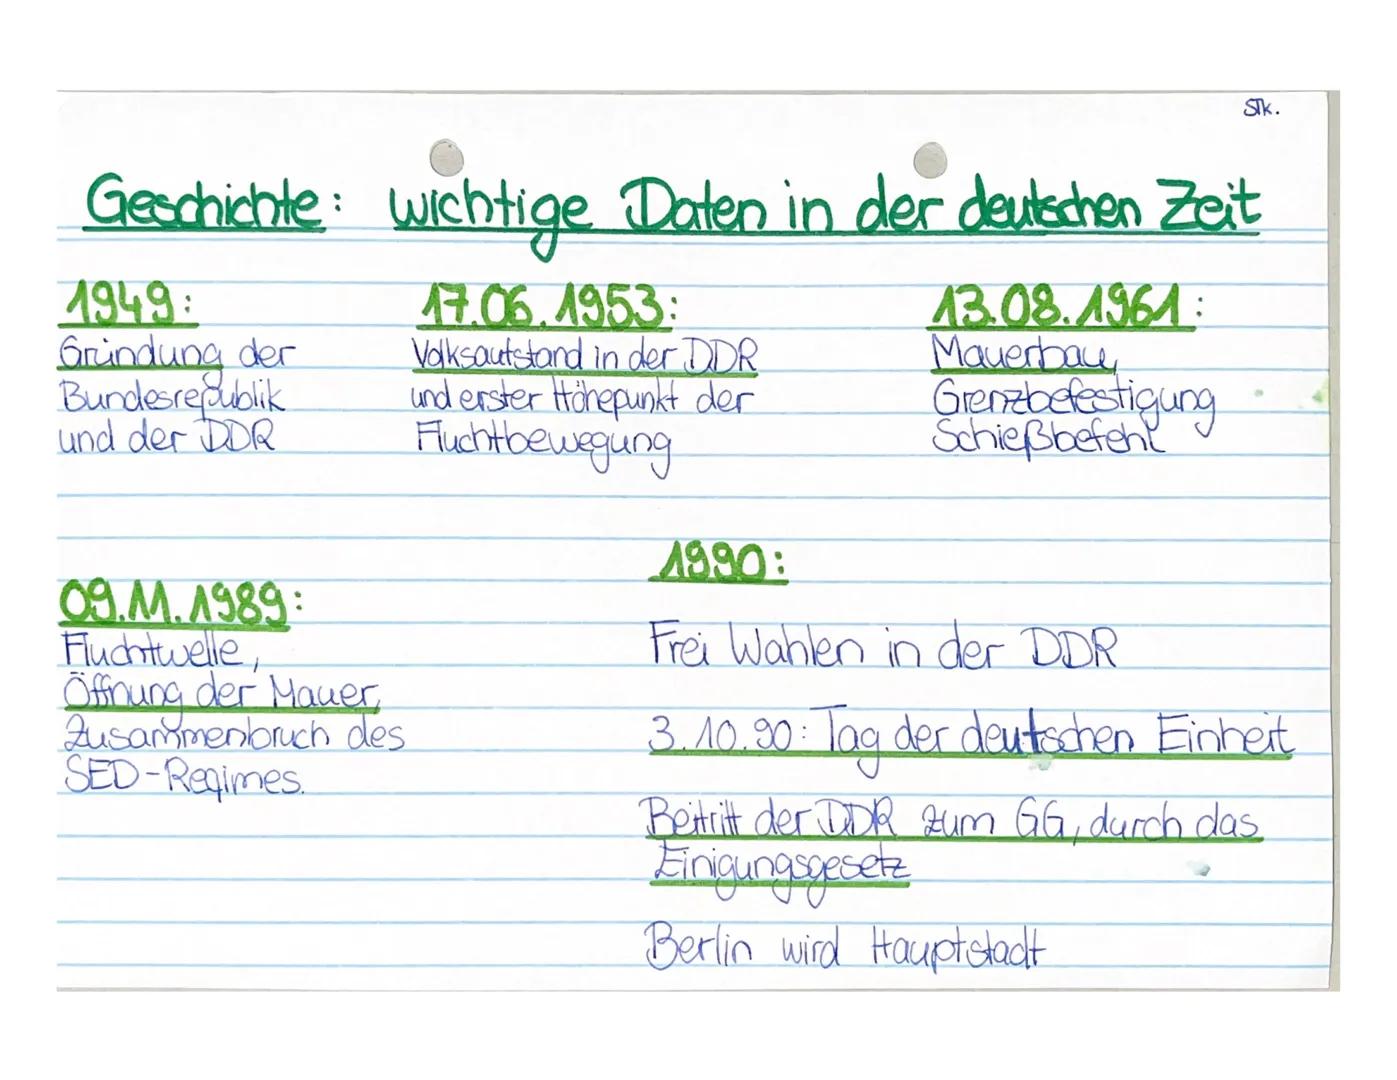 STk.
Geschichte: wichtige Daten in der deutschen Zeit
1949:
Gründung der
Bundesrepublik
und der DDR
17.06.1953:
Volksaufstand in der DDR
und erster Höhepunkt der
Fluchtbewegung
13.08.1961:
Mauerbau,
Grenzbefestigung
Schießbefehl
09.11.1989:
Fluchtwelle,
Öffnung der Mauer,
Zusammenbruch des
SED-Regimes.
1990:
Frei Wahlen in der DDR
3.10.90: Tag der deutschen Einheit
Beitritt der DDR zum GG, durch das
Einigungsgesetz
Berlin wird Hauptstadt